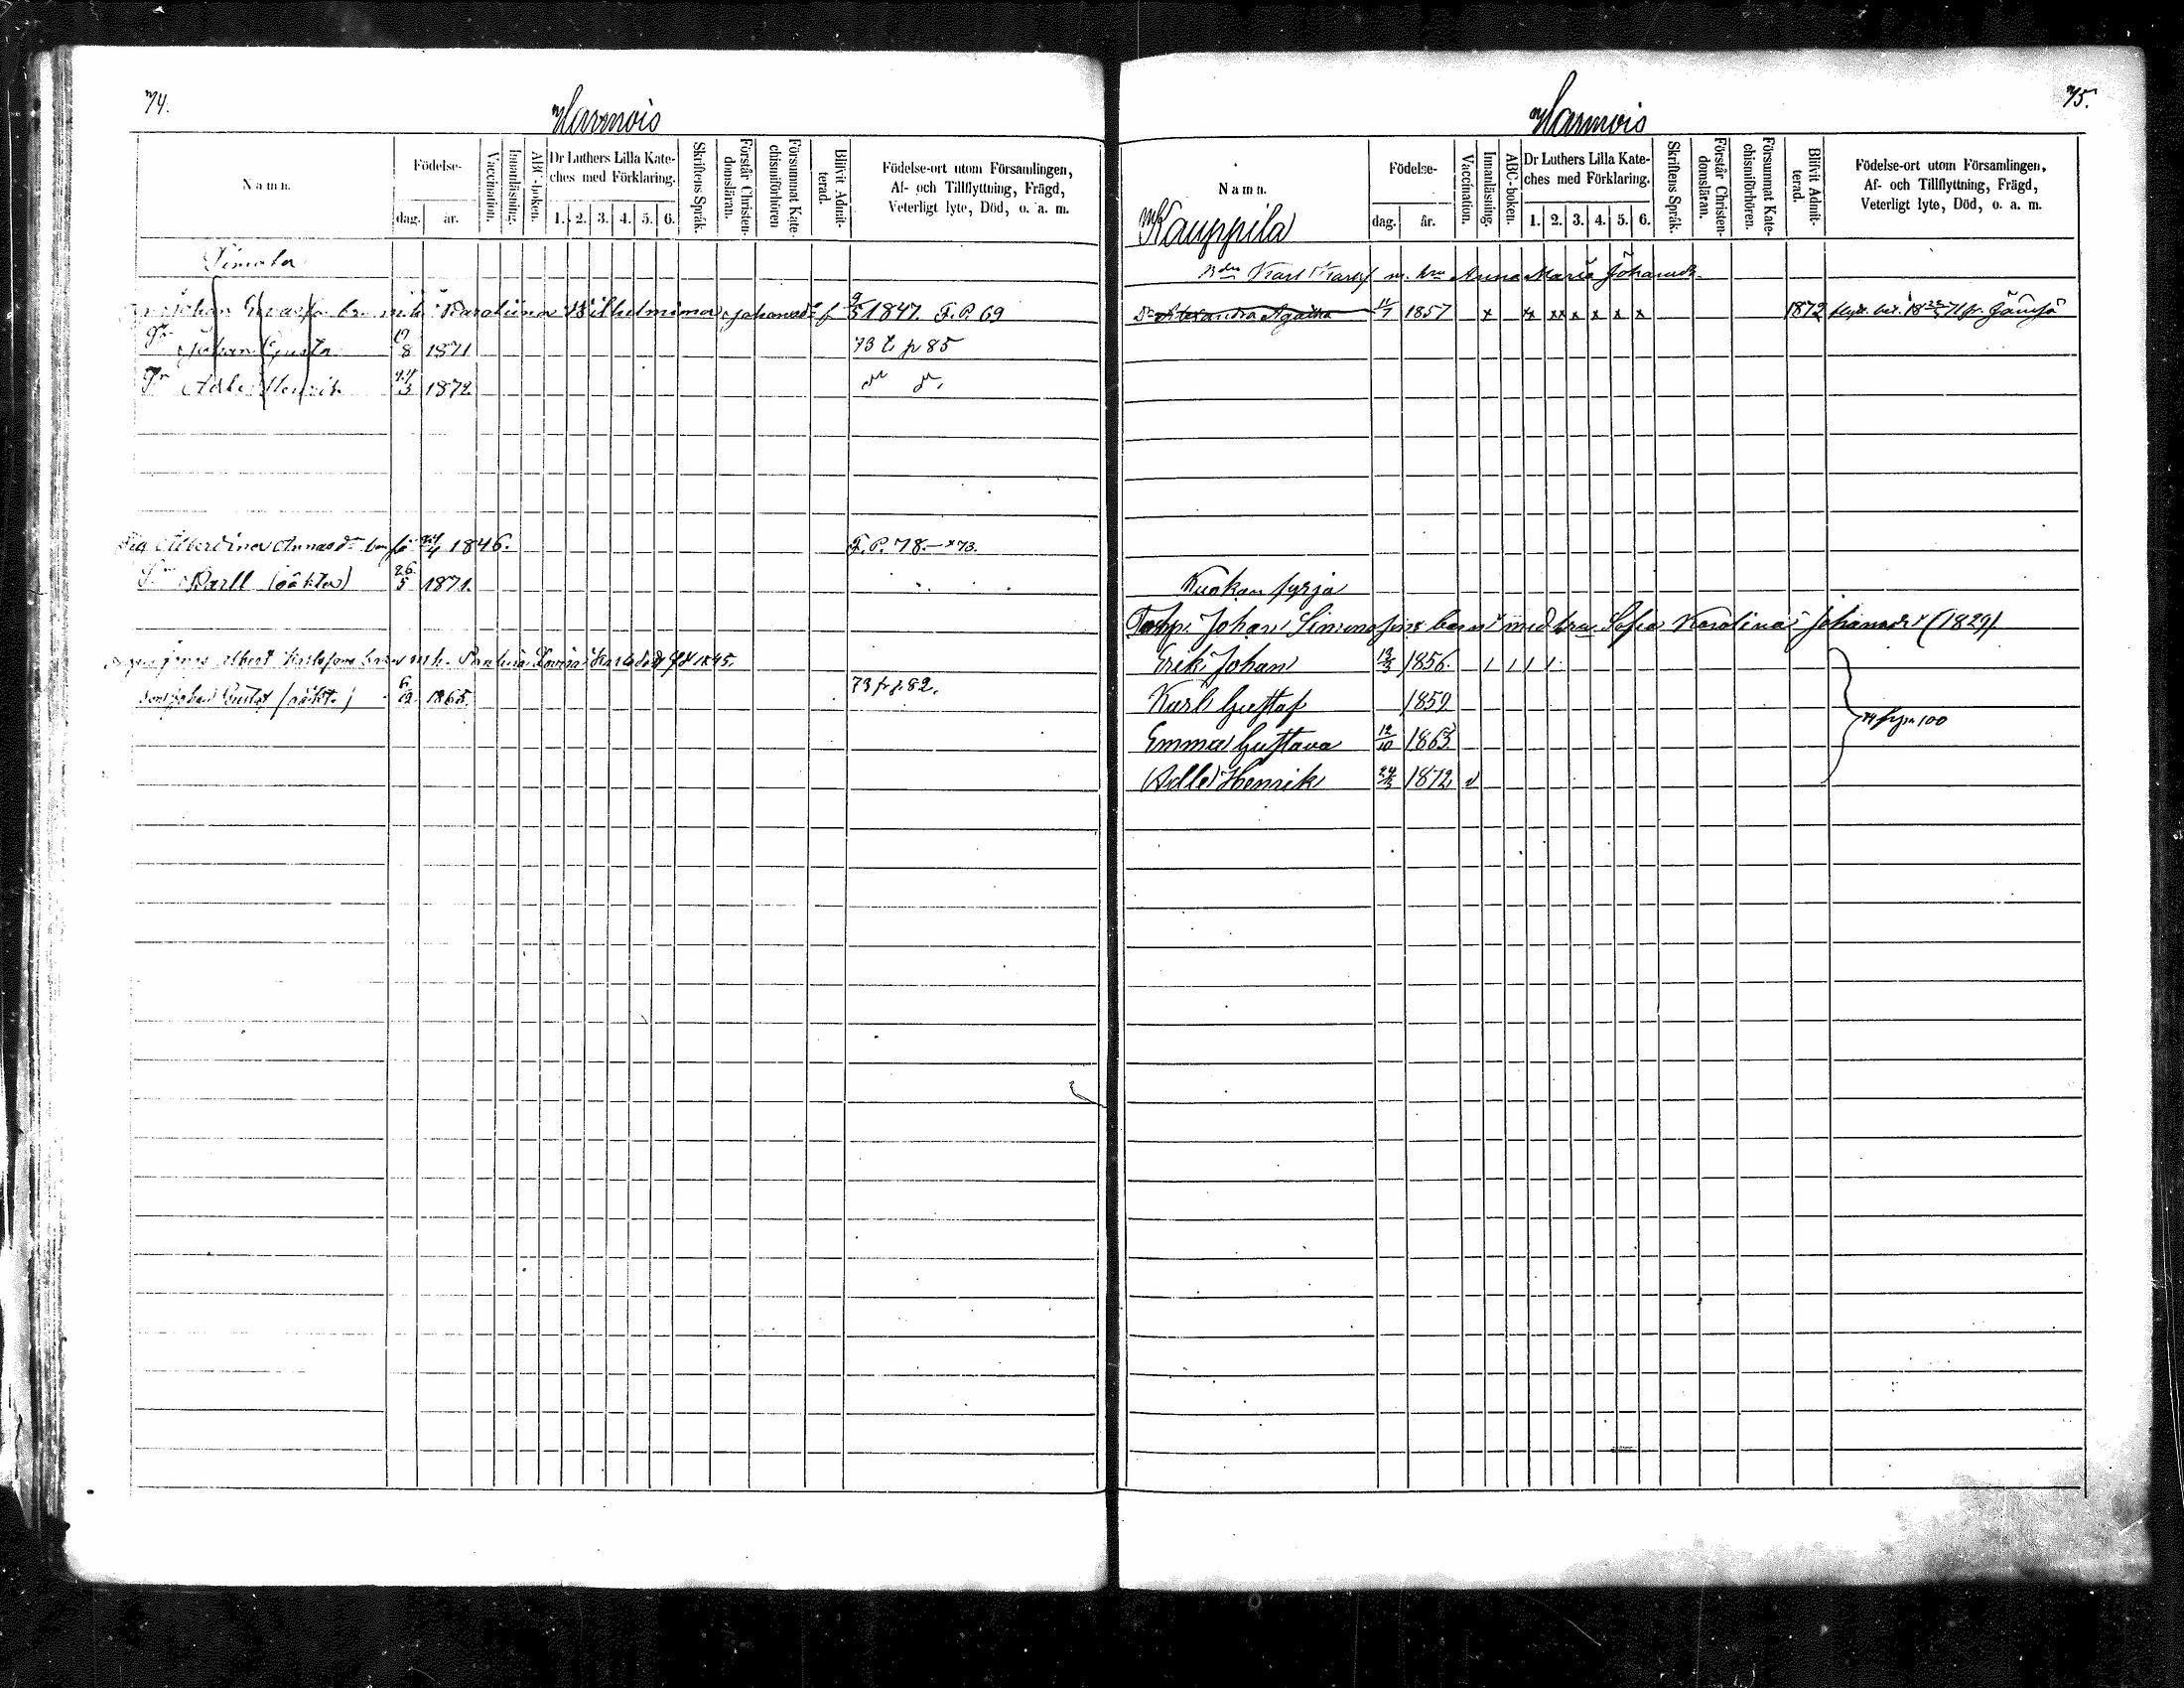 74.
Harmois
Namn.
Födelse-
dag.
år.
Vaccination.
Innanläsning.
ABC-boken.
Dr Luthers Lilla Kate-
ches med Förklaring.
1. 2. 3. 4. 5. 6.
Skriftens Språk.
Förstår Christen-
domsläran.
Försummat Kate-
chismiförhören
Blifvit Admit-
terad.
Födelse-ort utom Församlingen,
Af- och Tillflyttning, Frägd,
Veterligt lyte, Död, o. a. m.
Simola
Johan Karolina Wilhelmina Johansdr f 9/5 1847. F.P. 69
Johan Gusta 8 1871 73 t. p 85
Adle Henrik 24/3 1872
Albertina Annasdr 24/4 1846. F.P. 78. 73.
Karll (oäkta) 26/5 1871.
Albert Karlsson m.h. Paulina Lovisa Karlsdotr 1845.
Johan Gustaf (oäkt.) 6/12 1865. 73 fr p 82.
75.
Harmois
Namn.
Födelse-
dag.
år.
Vaccination.
Innanläsning.
ABC-boken.
Dr Luthers Lilla Kate-
ches med Förklaring.
1. 2. 3. 4. 5. 6.
Skriftens Språk.
Förstår Christen-
domsläran.
Försummat Kate-
chismiförhören.
Blifvit Admit-
terad.
Födelse-ort utom Församlingen,
Af- och Tillflyttning, Frägd,
Veterligt lyte, Död, o. a. m.
Kauppila
Karl Karlss m. hru Anna Maria Johansdr
Dr Alexandra Agatha 11/7 1857 x x xx x x x x 1872 71 fr. Jämsä
Kuokan syrjä
Torp. Johan Simonssons barn med hru Sofia Karolina Johansdr (1829)
Erik Johan 13/3 1856.
Karl Gustaf 1859
Emma Gustava 12/10 1863 74 fr p 100
Adle Henrik 24/3 1872 v